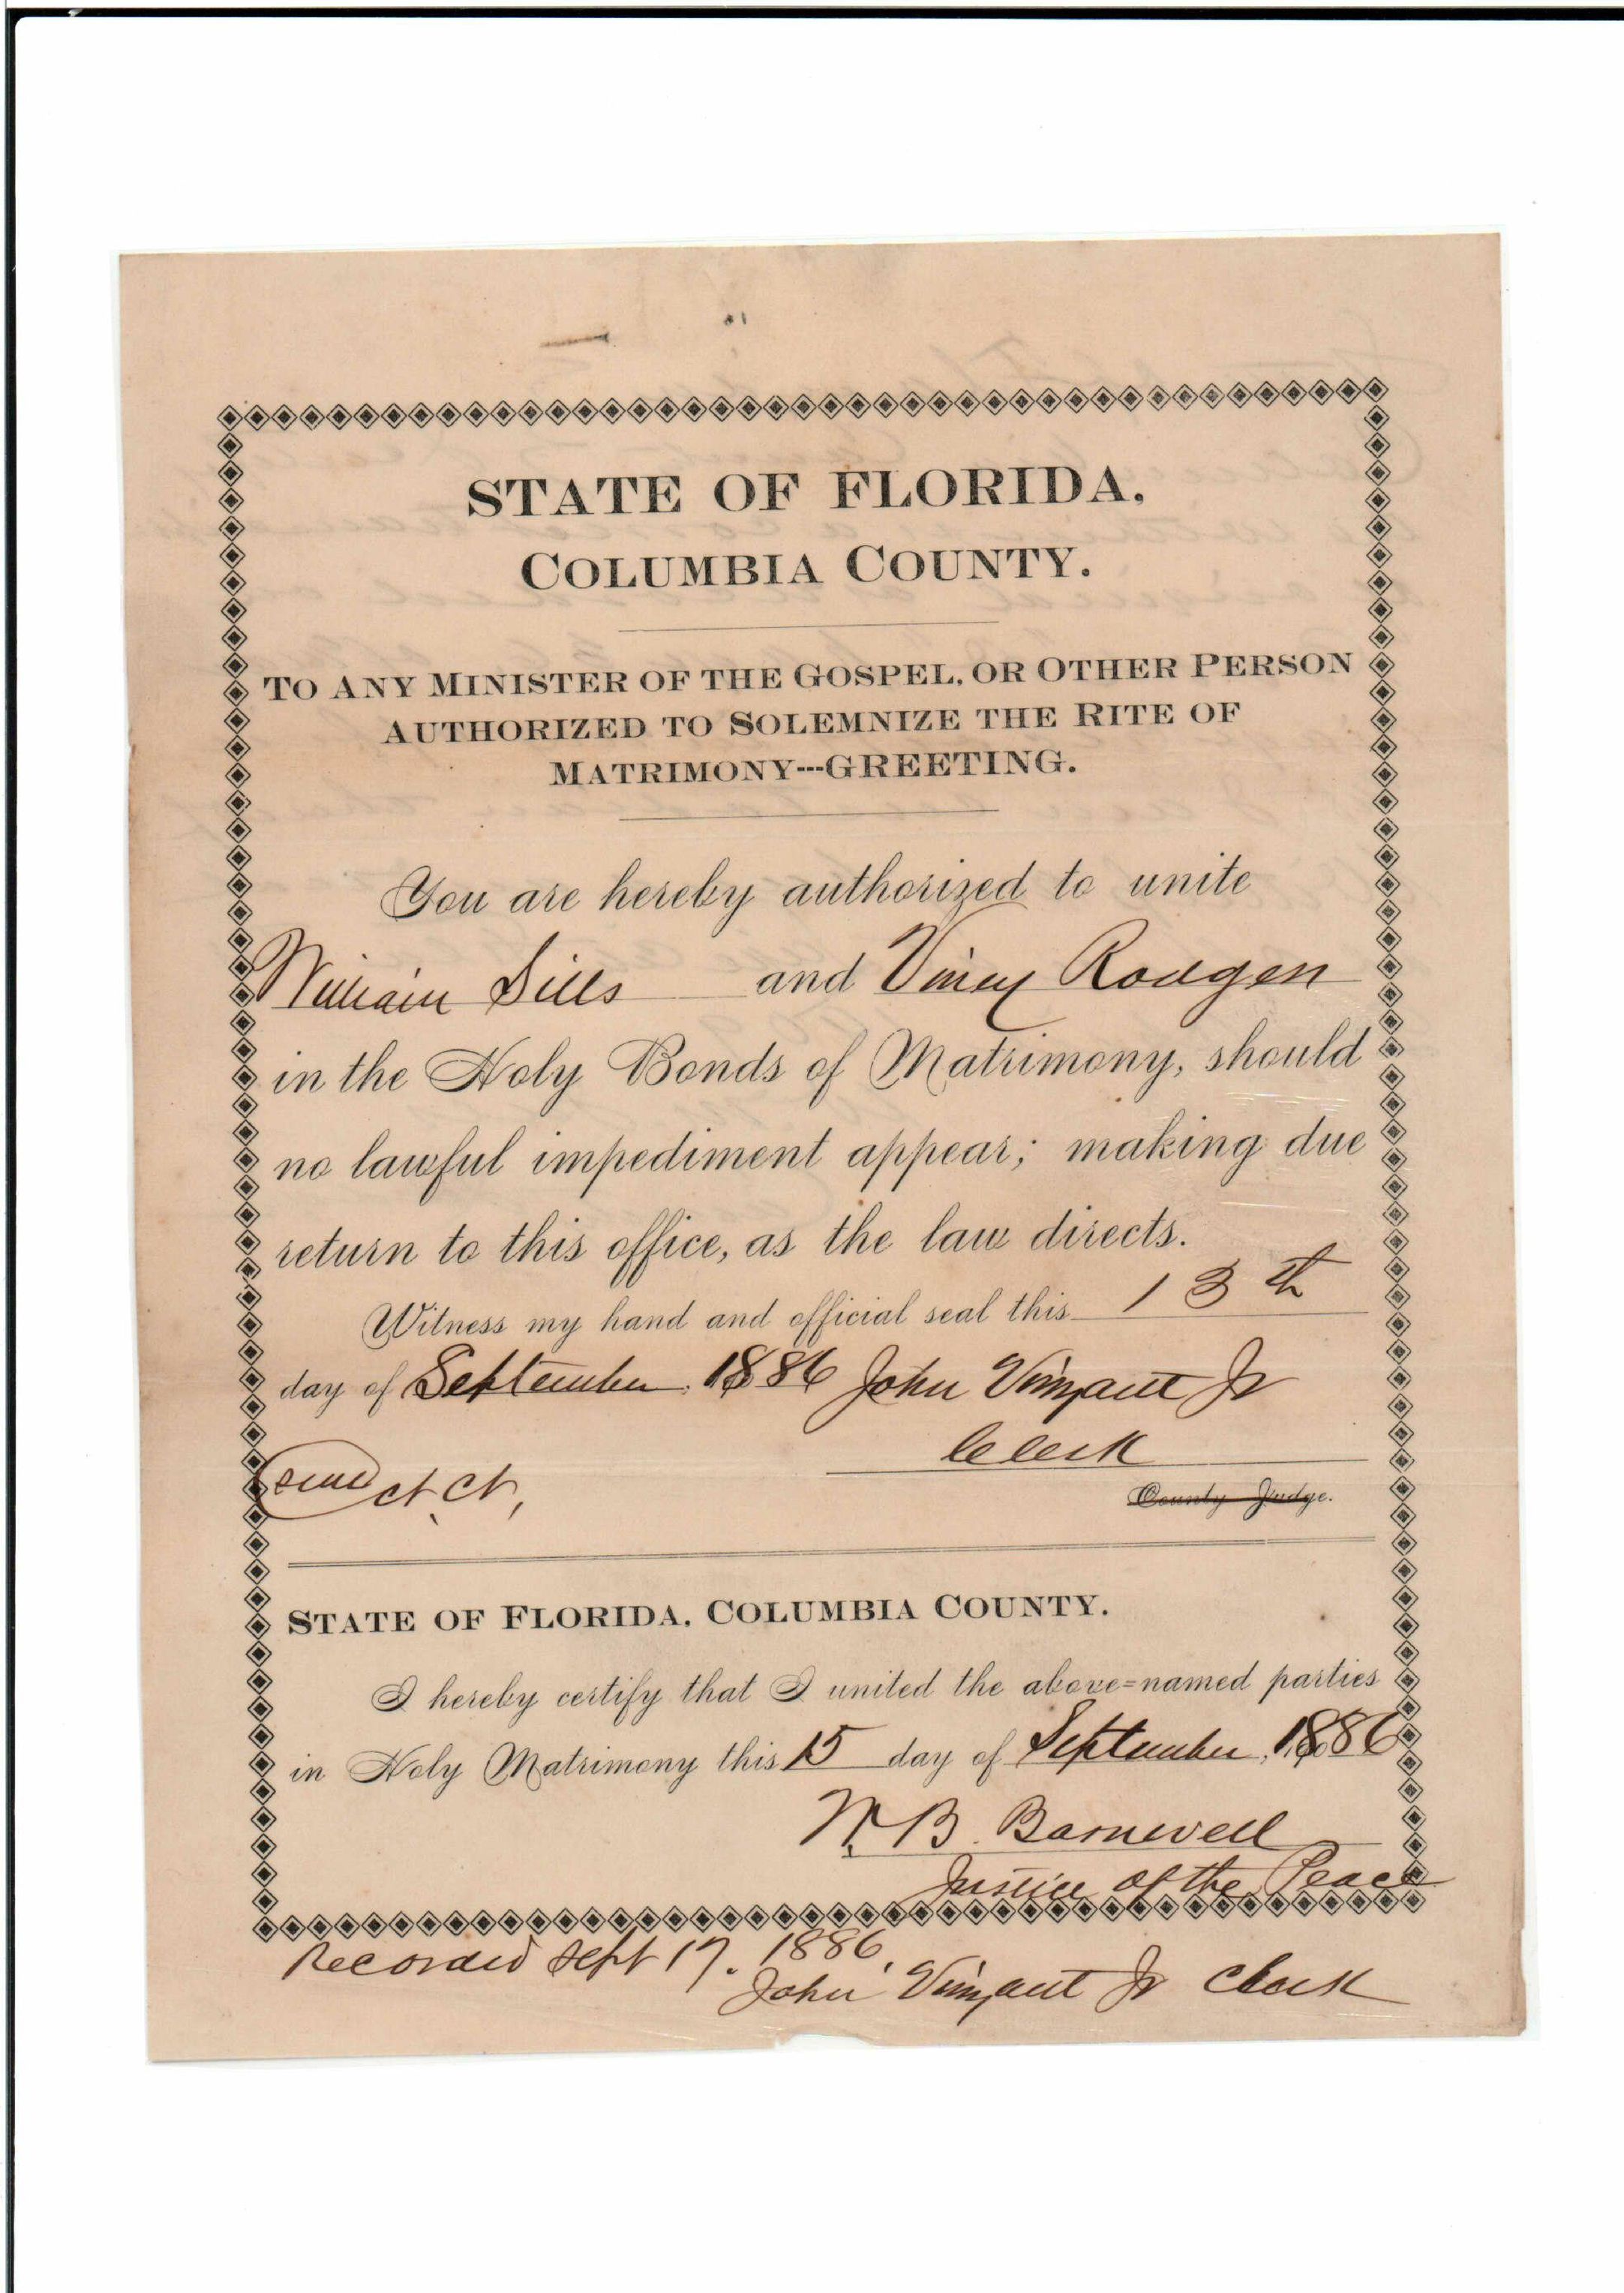 STATE OF FLORIDA,
COLUMBIA COUNTY.
TO ANY MINISTER OF THE GOSPEL, OR OTHER PERSON
AUTHORIZED TO SOLEMNIZE THE RITE OF
MATRIMONY---GREETING.
You are hereby authorized to unite
William Sills and Viney Rodgers
in the Holy Bonds of Matrimony, should
no lawful impediment appear; making due
return to this office, as the law directs.
Witness my hand and official seal this 13th
day of September, 1886 John Vinzant Jr
Clerk
Ct. Ct.,
County Judge.
STATE OF FLORIDA, COLUMBIA COUNTY.
I hereby certify that I united the above=named parties
in Holy Matrimony this 15 day of September, 1886
W. B. Barnwell
Justice of the Peace
Recorded Sept 17. 1886,
John Vinzant Jr Clerk